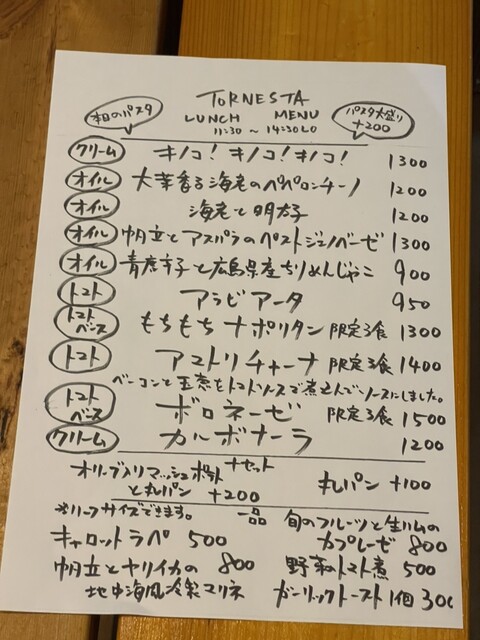 TORNESTA
本日のパスタ
LUNCH MENU
パスタ大盛り
+200
11:30 ~ 14:30LO
クリーム キノコ! キノコ! キノコ! 1300
オイル 大葉香る海老のペペロンチーノ 1200
オイル 海老と明太子 1200
オイル 帆立とアスパラのペストジェノベーゼ 1300
オイル 青唐辛子と広島県産ちりめんじゃこ 900
トマト アラビアータ 950
トマトベース もちもちナポリタン 限定3食 1300
トマト アマトリチャーナ 限定3食 1400
ベーコンと玉葱をトマトソースで煮込んでソースにしました。
トマトベース ボロネーゼ 限定3食 1500
クリーム カルボナーラ 1200
+セット
オリーブ入りマッシュポテト
と丸パン +200
丸パン +100
※ハーフサイズできます。
一品
旬のフルーツと生ハムの
カプレーゼ 800
キャロットラペ 500
野菜のトマト煮 500
帆立とヤリイカの 800
地中海風冷製マリネ
ガーリックトースト 1個 300